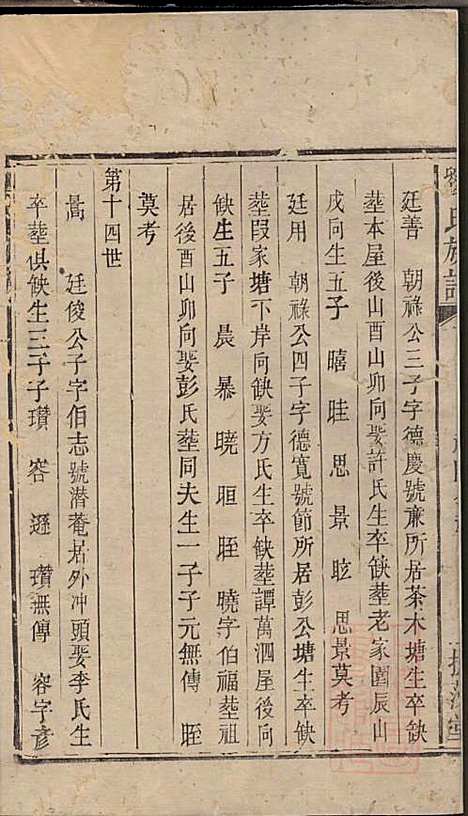 氏族譜
廷善 朝祿公三子字德慶號亷所居茶木塘生卒缺
塟本屋後山酉山卯向娶許氏生卒缺塟老家園辰山
戌向生五子 暿 晆 思 景 昡 思景莫考
廷用 朝祿公四子字德寬號節所居彭公塘生卒缺
塟叚家塘下岸向缺娶方氏生卒缺塟譚萬泗屋後向
缺生五子 晨 暴 曉 晅 眰 曉字伯福塟祖
居後酉山卯向娶彭氏塟同夫生一子子元無傳 眰
莫考
第十四世
暠 廷俊公子字伯志號潛菴居外冲頭娶李氏生
卒塟俱缺生三子子瓚 容 遜 瓚無傳 容字彥